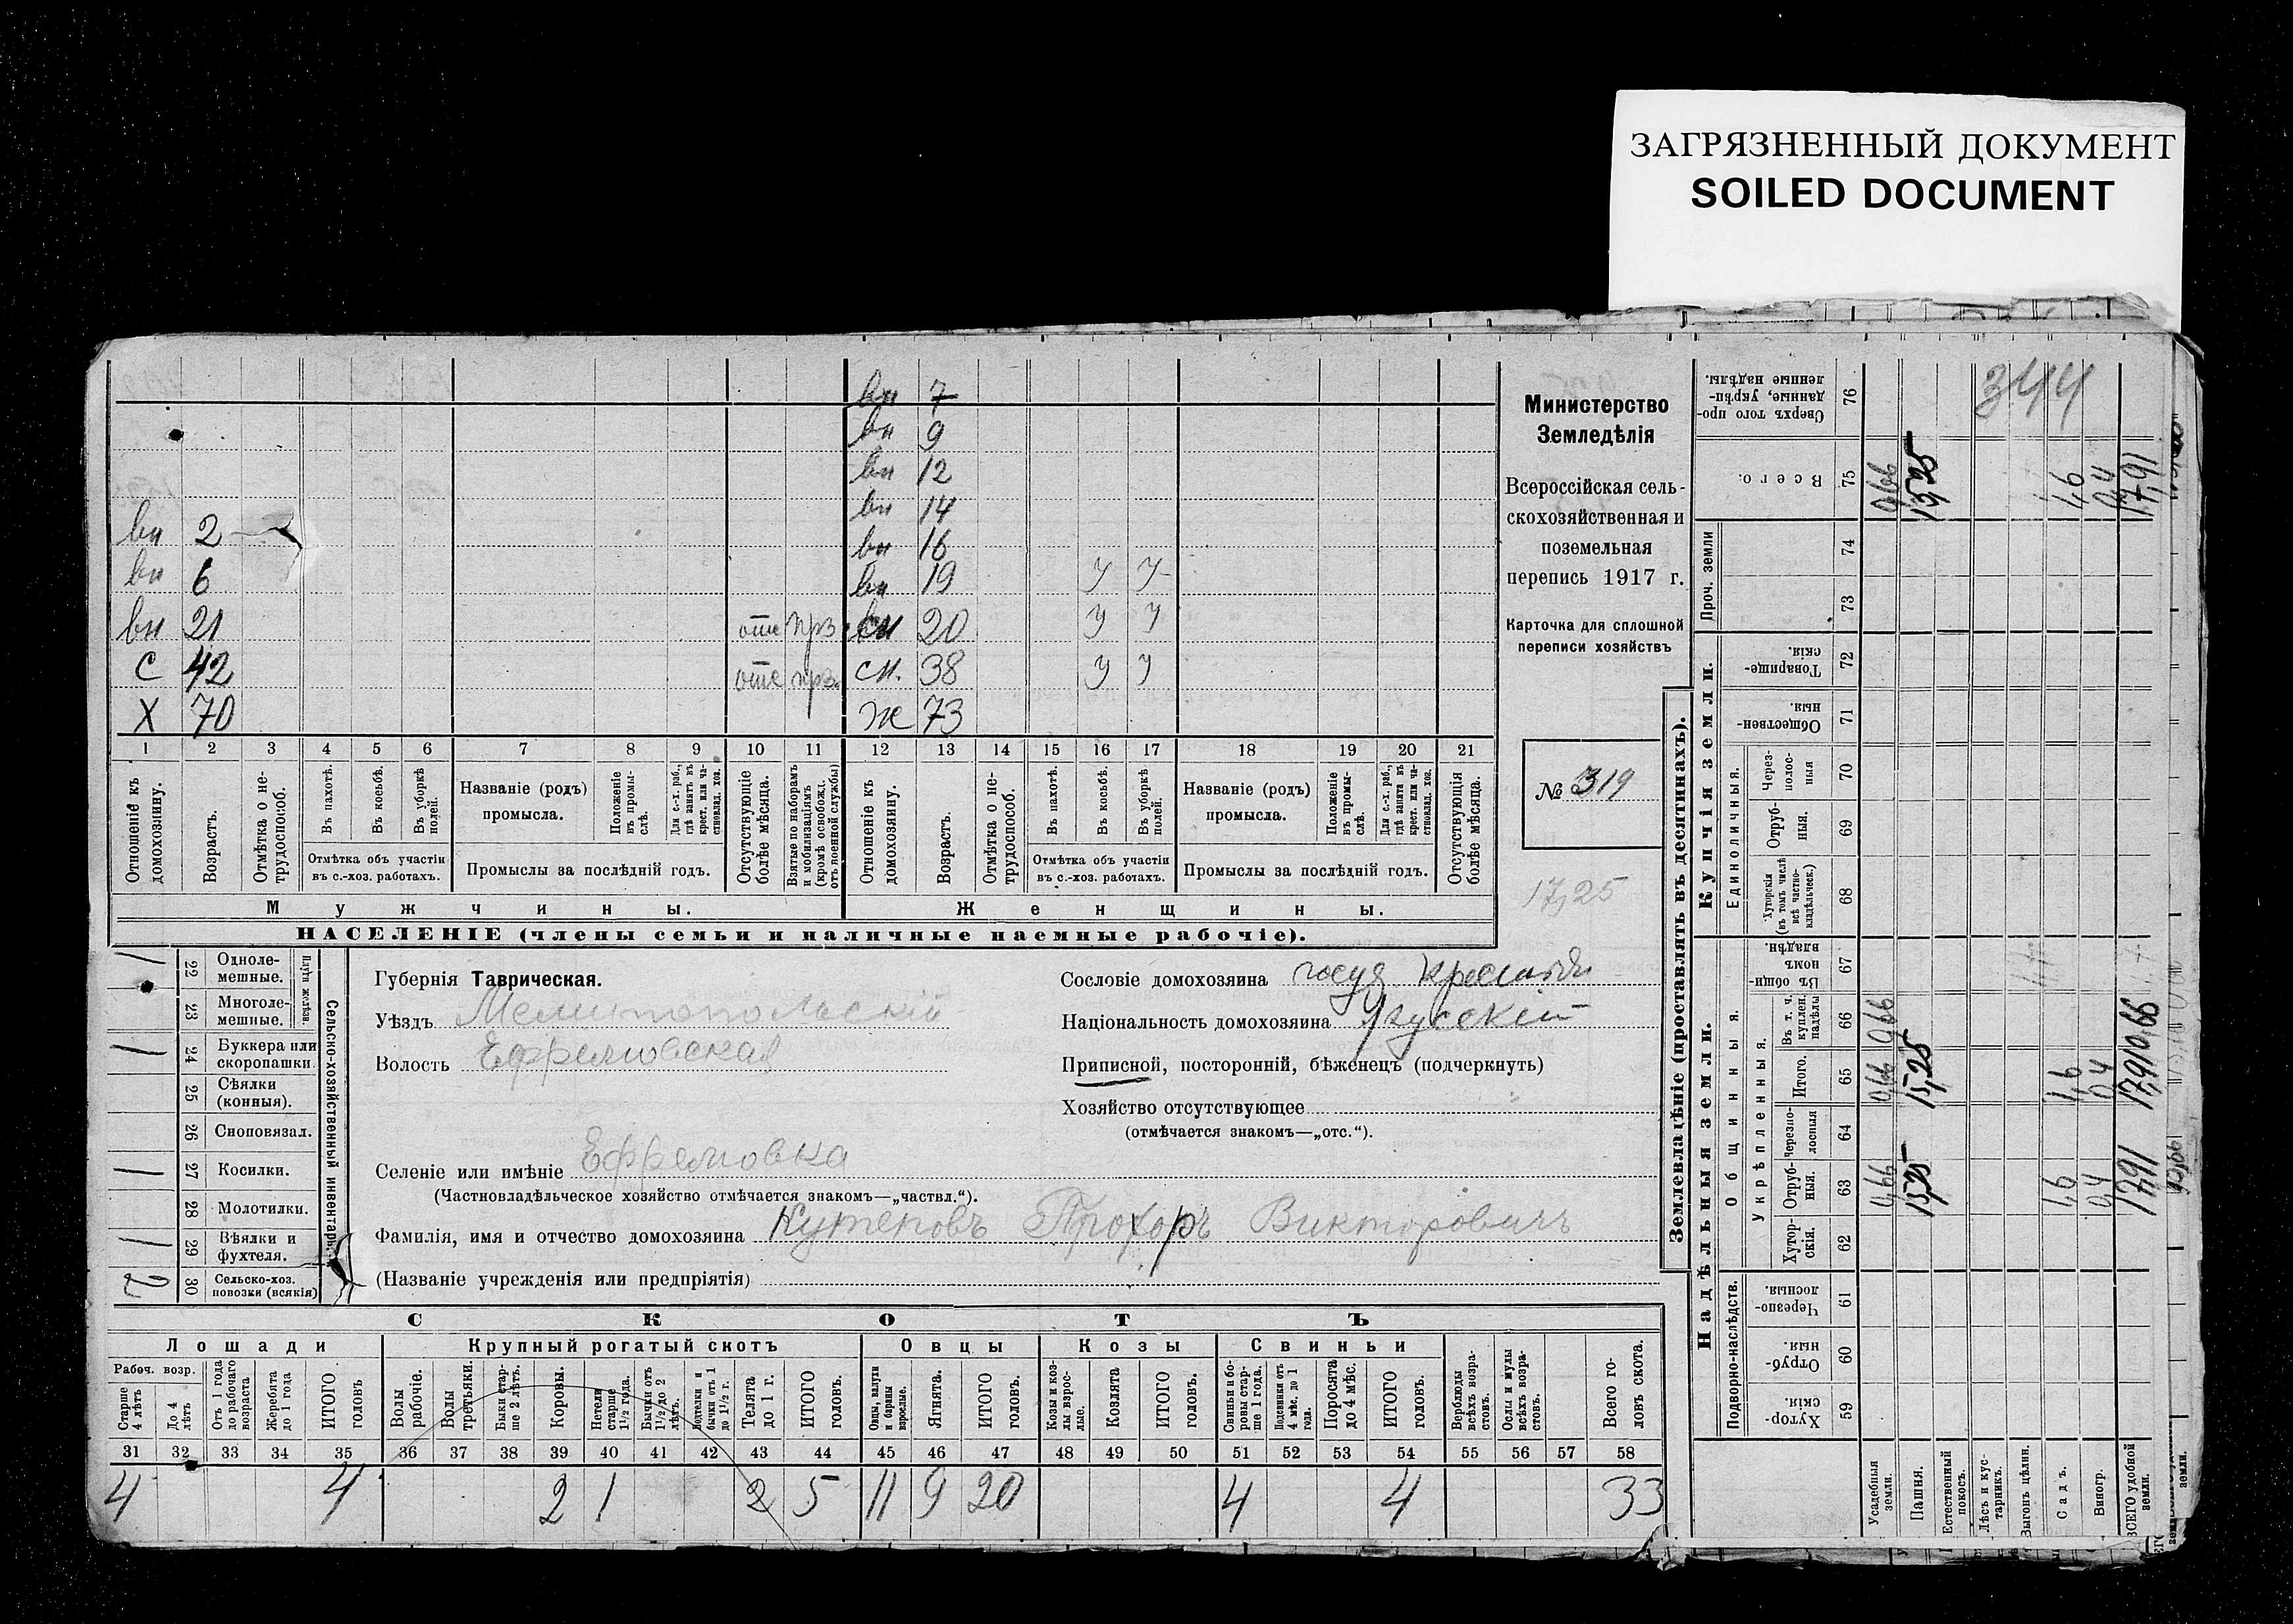 ЗАГРЯЗНЕННЫЙ ДОКУМЕНТ
SOILED DOCUMENT
вн 7
вн 9
вн 12
вн 14
вн 2 вн 16
вн 6 вн 19 у у
вн 21 отс прз 20 у у
С 42 отс прз. сн. 38 у у
Х 70 Ж 73
1 2 3 4 5 6 7 8 9 10 11 12 13 14 15 16 17 18 19 20 21
Отношеніе къ домохозяину.
Возрастъ.
Отмѣтка о нетрудоспособ.
Въ пахотѣ.
Въ косьбѣ.
Въ уборкѣ полей.
Отмѣтка объ участіи въ с.-хоз. работахъ.
Названіе (родъ) промысла.
Положеніе въ промыслѣ.
Для с.-х. раб., гдѣ занятъ въ крест. или частновлад. хоз.
Промыслы за послѣдній годъ.
Отсутствующіе болѣе мѣсяца.
Взятые по наборамъ и мобилизаціямъ (кромѣ освобожд. отъ военной службы)
Отношеніе къ домохозяину.
Возрастъ.
Отмѣтка о нетрудоспособ.
Въ пахотѣ.
Въ косьбѣ.
Въ уборкѣ полей.
Отмѣтка объ участіи въ с.-хоз. работахъ.
Названіе (родъ) промысла.
Положеніе въ промыслѣ.
Для с.-х. раб., гдѣ занята въ крест. или частновлад. хоз.
Промыслы за послѣдній годъ.
Отсутствующія болѣе мѣсяца.
Мужчины. Женщины.
НАСЕЛЕНІЕ (члены семьи и наличные наемные рабочіе).
Министерство
Земледѣлія
Всероссійская сель-
скохозяйственная и
поземельная
перепись 1917 г.
Карточка для сплошной
переписи хозяйствъ
№ 319
17,25
Сельско-хозяйственный инвентарь.
Плуги желѣзн.
22 Одноле-мешные. 1
23 Многоле-мешные.
24 Буккера или скоропашки 1
25 Сѣялки (конныя).
26 Сноповязал.
27 Косилки. 1
28 Молотилки.
29 Вѣялки и фухтеля. 1
30 Сельско-хоз. повозки (всякія) 2
Губернія Таврическая.
Уѣздъ Мелитопольскій
Волость Ефремовская
Селеніе или имѣніе Ефремовка
(Частновладѣльческое хозяйство отмѣчается знакомъ—„частвл.“).
Фамилія, имя и отчество домохозяина Кутеповъ Прохоръ Викторовичъ
(Названіе учрежденія или предпріятія)
Сословіе домохозяина госуд
Національность домохозяина Русскій
Приписной, посторонній, бѣженецъ (подчеркнуть)
Хозяйство отсутствующее
(отмѣчается знакомъ—„отс.“).
СКОТЪ
Лошади Крупный рогатый скотъ Овцы Козы Свиньи
Рабоч. возр.
Старше 4 лѣтъ
До 4 лѣтъ
Отъ 1 года до рабочаго возраста
Жеребята до 1 года
ИТОГО головъ
Волы рабочіе.
Волы третьяки.
Быки старше 2 лѣтъ.
Коровы.
Нетели старше 1½ года.
Бычки отъ 1½ до 2 лѣтъ.
бычки отъ 1 до 1½ г.
Телята до 1 г.
ИТОГО головъ.
Овцы, валухи и бараны взрослые.
Ягнята.
ИТОГО головъ.
Козы и козлы взрослые.
Козлята
ИТОГО головъ.
Свиньи и боровы старше 1 года.
Подсвинки отъ 4 мѣс. до 1 года.
Поросята до 4 мѣс.
ИТОГО головъ.
Верблюды всѣхъ возрастовъ.
Ослы и мулы всѣхъ возрастовъ.
Всего головъ скота.
31 32 33 34 35 36 37 38 39 40 41 42 43 44 45 46 47 48 49 50 51 52 53 54 55 56 57 58
4 4 2 1 2 5 11 9 20 4 4 33
Землевладѣніе (проставлять въ десятинахъ).
Надѣльныя земли. Купчія земли. Проч. земли
Подворно-наслѣдств.
Общинныя.
Укрѣпленныя.
Единоличныя.
Хуторскія. 59
Отрубныя. 60
Черезполосныя. 61
Хуторскія. 62
Отрубныя. 63
Черезполосныя 64
Итого. 65
Въ т. ч. куплен. надѣлы 66
Въ общинномъ владѣн. 67
Хуторскія (въ томъ числѣ всѣ частновладѣльческ.) 68
Отрубныя. 69
Черезполосныя 70
Общественныя. 71
Товарищескія. 72
73
74
Всего. 75
Сверхъ того проданные, укрѣпленные надѣлы. 76
Усадебныя земли. 0,66 0,66 0,66 0,66
Пашня. 15,25 15,25 15,25
Естественный покосъ.
Лѣсъ и кустарникъ.
Выгонъ цѣлин.
Садъ. 1,6 1,6 1,6
Виногр. 0,4 0,4 0,4
ВСЕГО удобной земли. 17,91 17,91 0,66 17,91
344